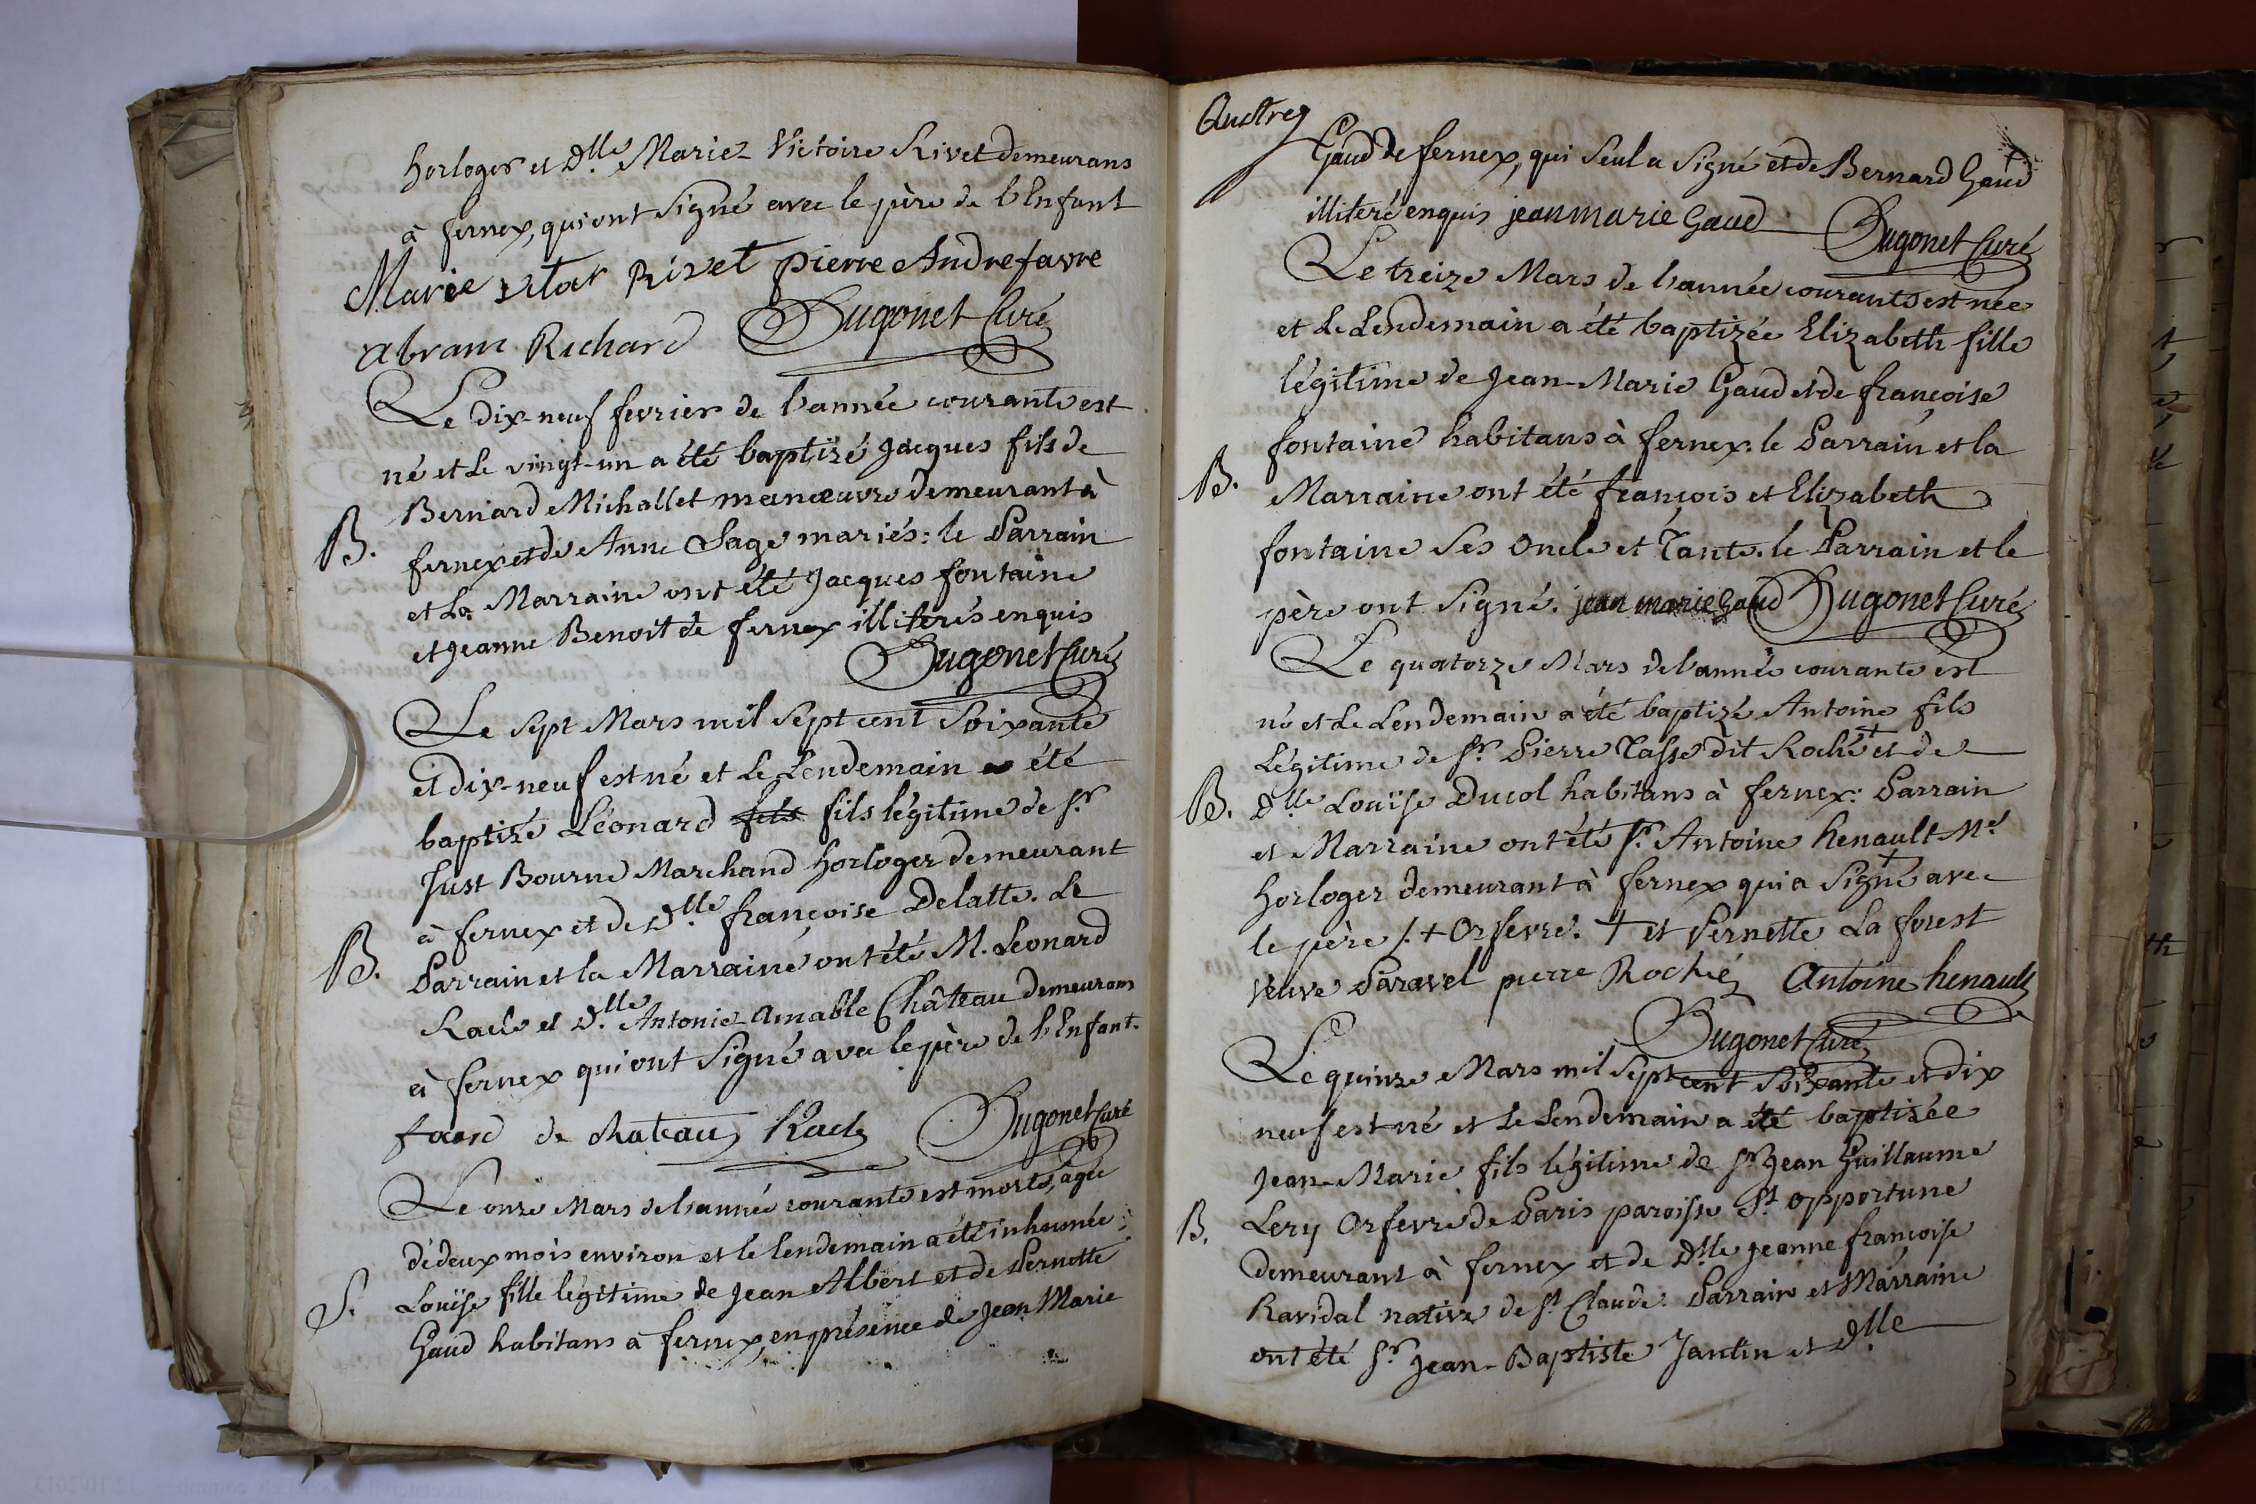 horloger et D.lle Marie-Victoire Rivet demeurans
à fernex, qui ont signé avec le père de l'Enfant
Marie victoir Rivet pierre Andre favre
Abram Richard Hugonet Curé
Le dix-neuf fevrier de l'année courante est
né et le vingt-un a été baptizé Jacques fils de
Bernard Michallet manœuvre demeurant à
B. fernex et de Anne Sage mariés: le Parrain
et la Marraine ont été Jacques fontaine
et Jeanne Benoit de fernex illiterés enquis
Hugonet Curé
Le sept Mars mil sept cent soixante
et dix-neuf est né et le Lendemain a été
baptizé Léonard fils fils légitime de Sr
Just Bourne Marchand horloger demeurant
à fernex et de D.lle françoise Delatte. Le
B. Parrain et la Marraine ont été M. Leonard
Racle et D.lle Antonie-Amable Château demeurans
à fernex qui ont signé avec le père de l'Enfant.
de chateau Racle Hugonet Curé
Le onze Mars de l'année courante est morte, agée
de deux mois environ et le lendemain a été inhumée
S. Louïse fille légitime de Jean Albert et de Pernette
Gaud habitans à fernex, en présence de Jean Marie
Quatre
Gaud de fernex, qui seul a signé et de Bernard Gaud
illiteré enquis jean marie Gaud Hugonet Curé
Le treize Mars de l'année courante est née
et le Lendemain a été baptizée Elizabeth fille
légitime de Jean-Marie Gaud et de françoise
fontaine habitans à fernex: le Parrain et la
B. Marraine ont été françois et Elizabeth
fontaine ses Oncle et Tante. le Parrain et le
père ont signé. jean marie Gaud Hugonet Curé
Le quatorze Mars de l'année courante est
né et le Lendemain a été baptizé Antoine fils
Légitime de Sr. Pierre Tasse dit Roché + et de
B. D.lle Louïse Ducol habitans à fernex: Parrain
et Marraine ont été Sr. Antoine henault Md
horloger demeurant à fernex qui a signé + avec
le père /. + Orfevre. + et Pernette La forest
veuve Paravel pierre Rochié Antoine henault
Hugonet Curé
Le quinze Mars mil sept cent soixante et dix
neuf est né et le Lendemain a été baptizée
Jean-Marie fils légitime de Sr Jean Guillaume
B. Lery Orfevre de Paris paroisse St. opportune
demeurant à fernex et de D.lle Jeanne françoise
Ravidal native de St. Claude. Parrain et Marraine
ont été Sr. Jean-Baptiste Jantin et D.lle